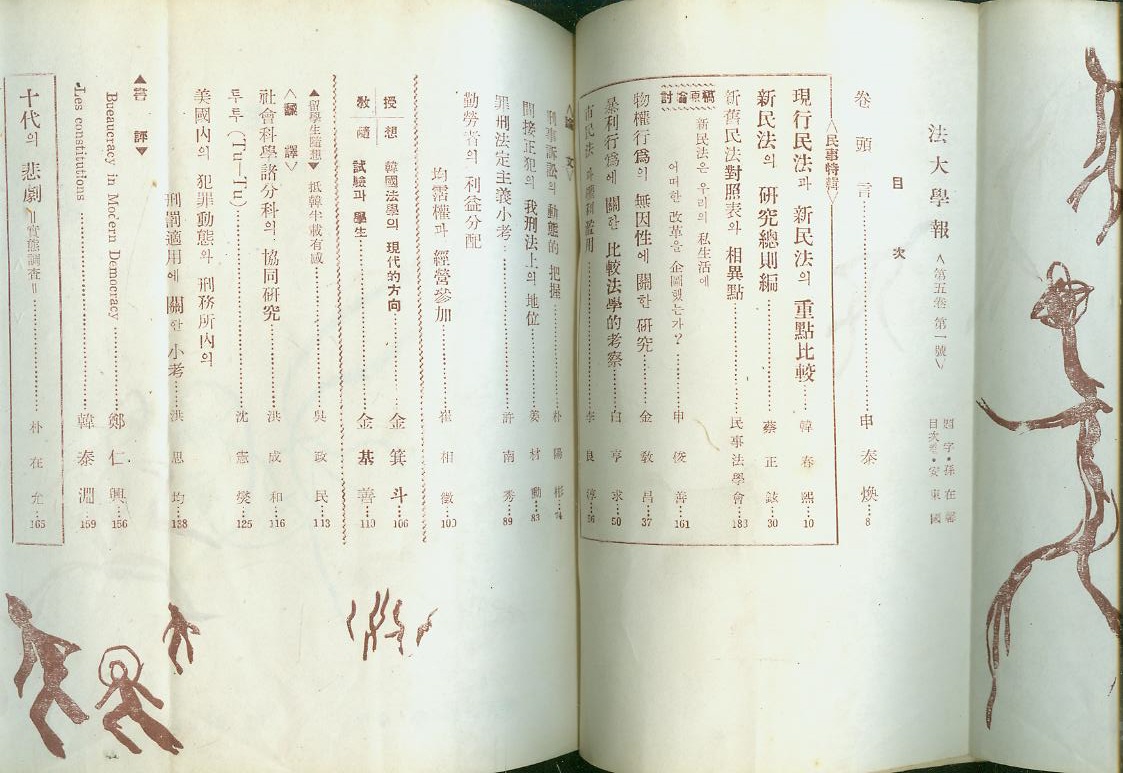 法大學報 <第五卷 第一號>
題字·孫在馨
目次·安東國
目次
卷頭言 申泰煥 8
<民事特輯>
現行民法과 新民法의 重點比較 韓春熙 10
新民法의 研究總則編 蔡正 30
新舊民法對照表와 相異點 民事法學會 183
討論原稿
新民法은 우리의 私生活에
어떠한 改革을 企圖했는가? 申俊善 161
物權行爲의 無因性에 關한 研究 金敦昌 37
暴利行爲에 關한 比較法學的考察 白亨求 50
市民法과 權利濫用 李良淳 56
<論文>
刑事訴訟의 動態的 把握 朴陽彬
間接正犯의 我刑法上의 地位 姜材勳 83
罪刑法定主義小考 許南秀 89
勤勞者의 利益分配
均霑權과 經營參加 崔相徵 100
教授隨想
韓國法學의 現代的方向 金箕斗 106
試驗과 學生 金基善 110
▲留學生隨想▼ 抵韓半載有感 吳政民 113
<飜譯>
社會科學諸分科의 協同研究 洪成和 116
투투 (Tu—Tu) 沈憲燮 125
美國內의 犯罪動態와 刑務所內의
刑罰適用에 關한 小考 洪思均 138
▲書評▼
Beaucracy in Modern Democracy 鄭仁興 156
Les constitutions 韓泰淵 159
十代의 悲劇 =實態調査= 朴在允 165